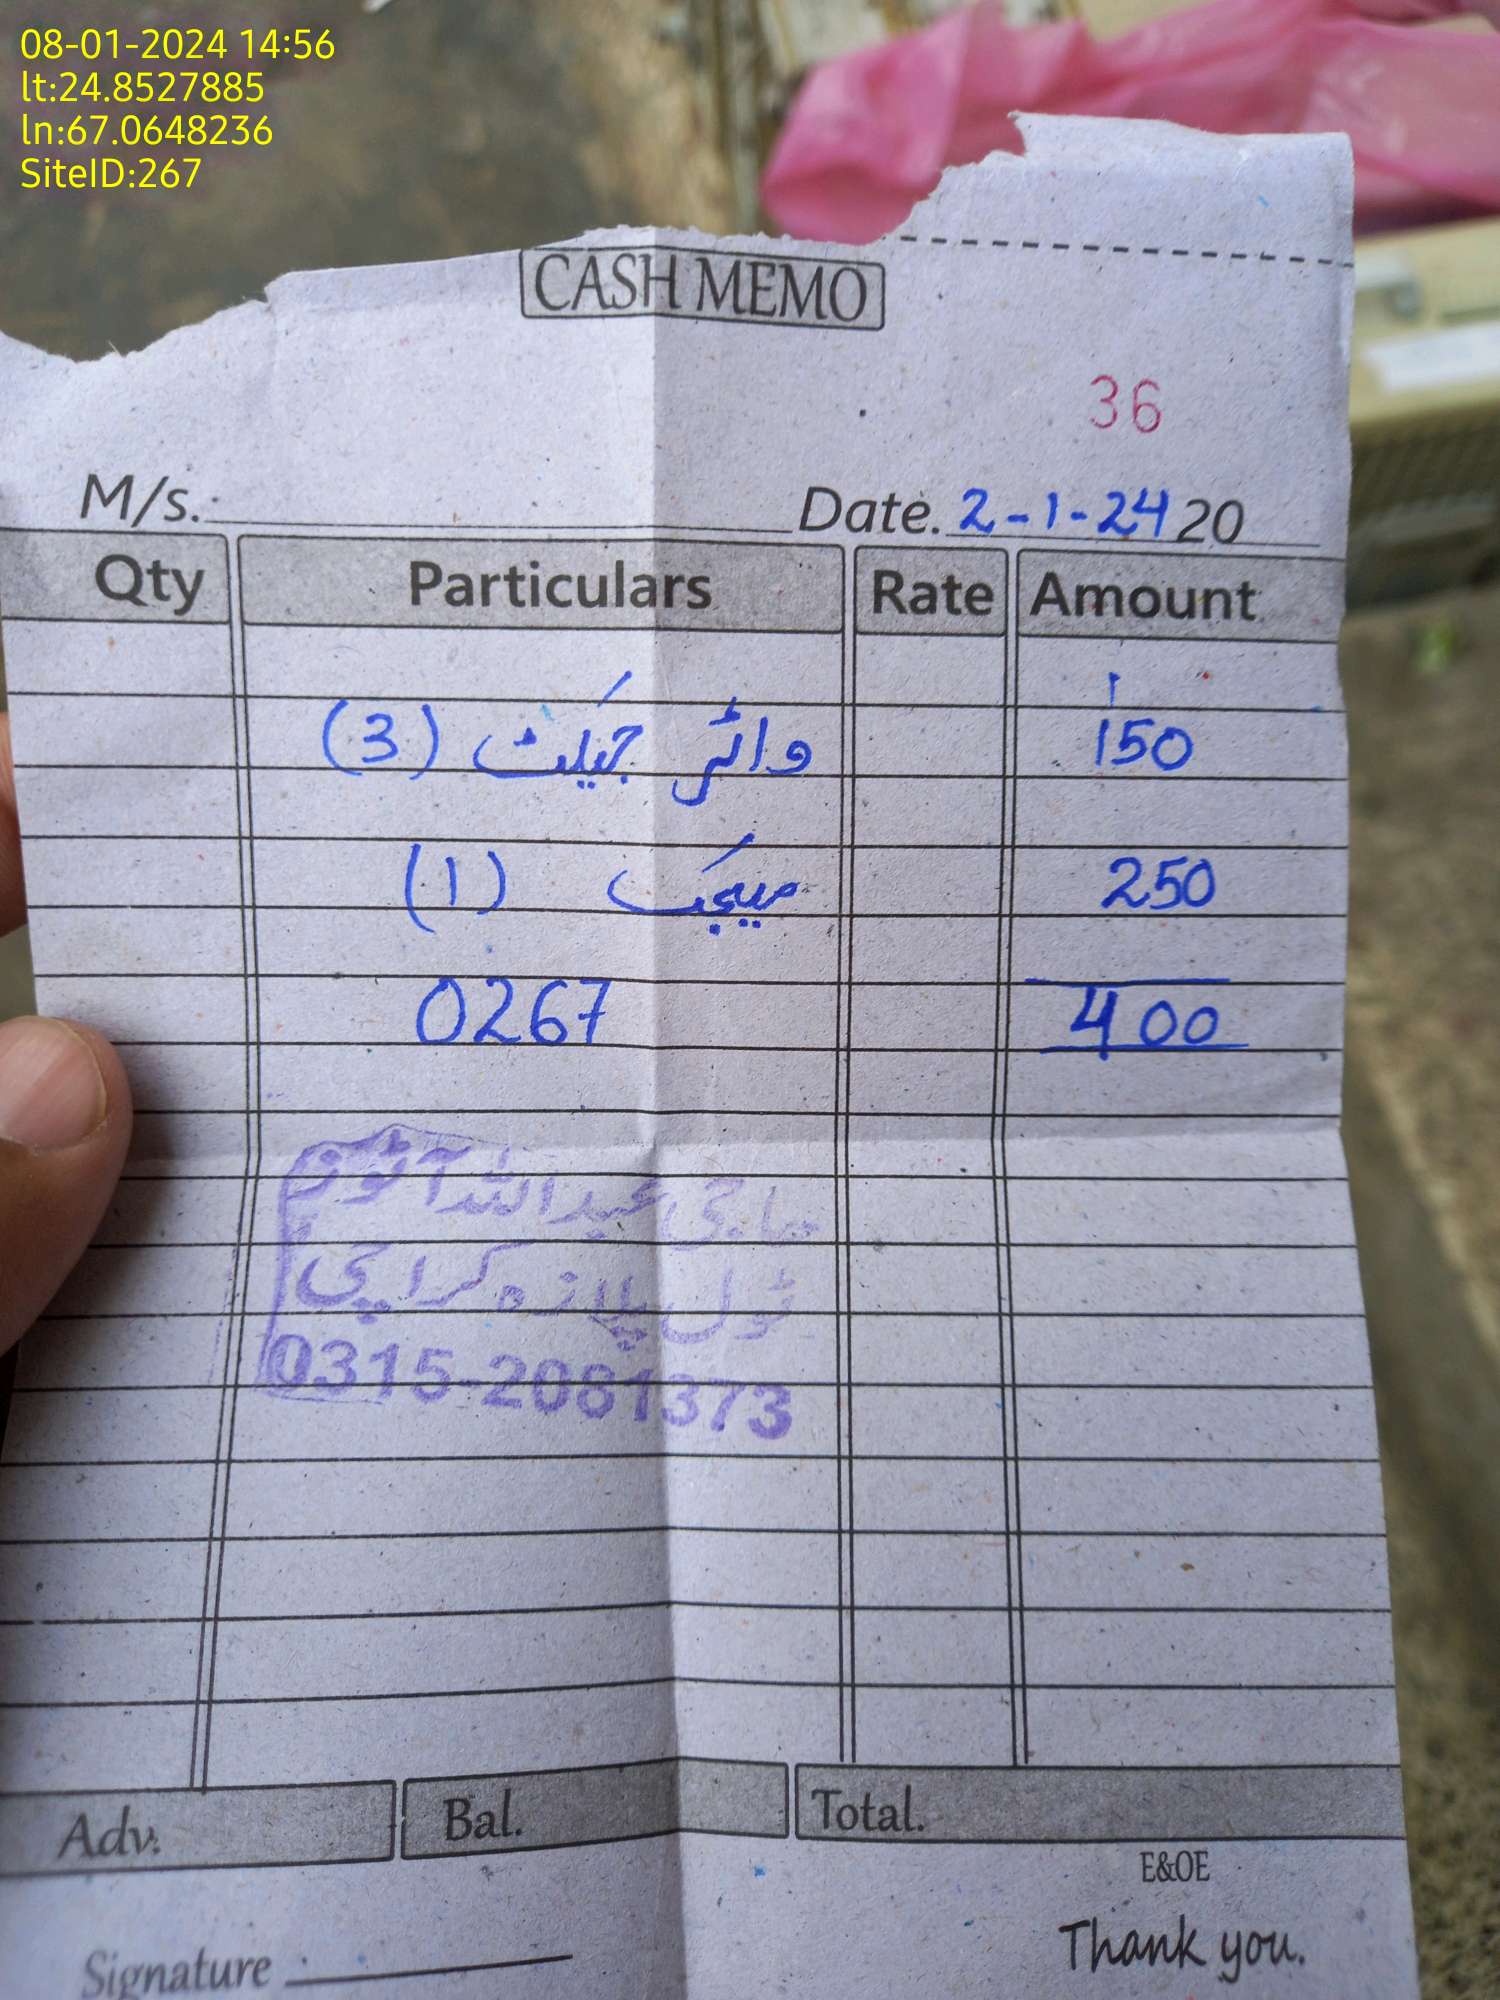 08-01-2024 14:56
lt:24.8527885
ln:67.0648236
SiteID:267
CASH MEMO
36
M/s. Date. 2-1-24 20
Qty Particulars Rate Amount
واٹر جیکٹ (3) 150
میجک (1) 250
0267 400
حاجی عبداللہ آٹوز
ٹول پلازہ کراچی
0315-2081373
Adv. Bal. Total.
E&OE
Thank you.
Signature